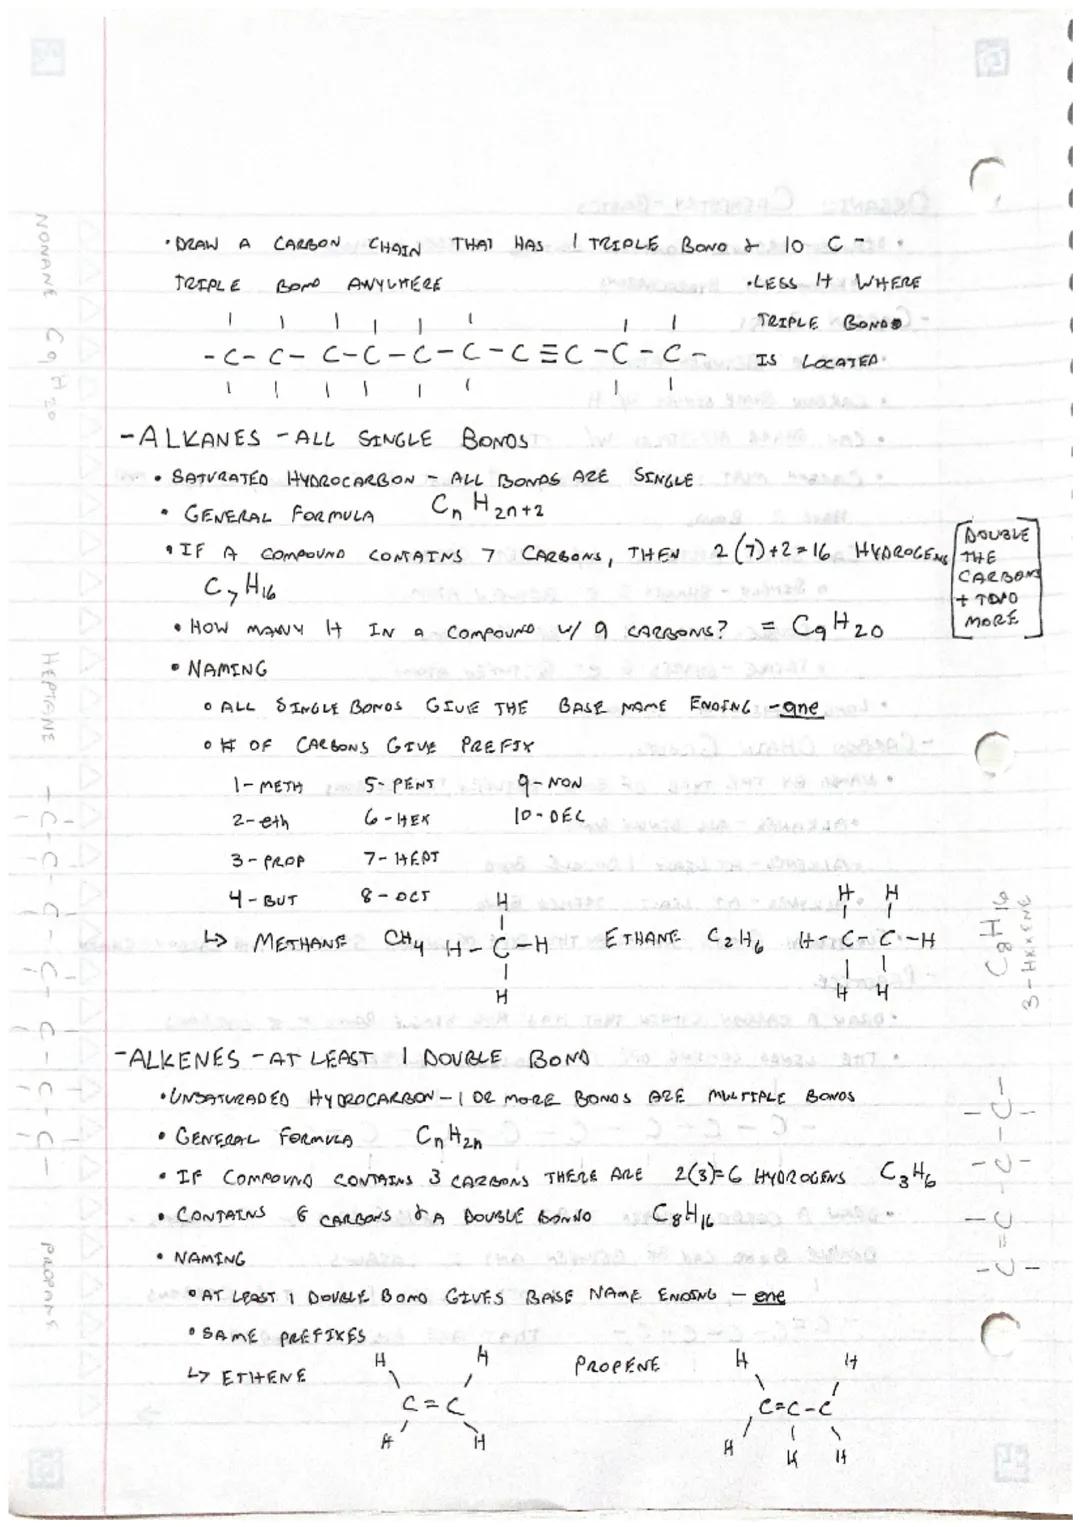 • DRAW A CARBON CHAIN THAT HAS 1 TRIPLE BOND & 10 C -
TRIPLE BOND ANYWHERE
• LESS H WHERE
TRIPLE BOND
IS LOCATED
- C - C - C - C - C - C - C ≡ C - C - C -
- ALKANES - ALL SINGLE BONDS
• SATURATED HYDROCARBON - ALL BONDS ARE SINGLE
• GENERAL FORMULA CnH2n+2
• IF A COMPOUND CONTAINS 7 CARBONS, THEN 2(7)+2=16 HYDROGENS
C7H16
DOUBLE
THE
CARBONS
+ TWO
MORE
• HOW MANY H IN A COMPOUND W/ 9 CARBONS? = C9H20
• NAMING
o ALL SINGLE BONDS GIVE THE BASE NAME ENDING -ane
o # OF CARBONS GIVE PREFIX
1-METH 5-PENT 9-NON
2-eth 6-HEX 10-DEC
3-PROP 7-HEPT
4-BUT 8-OCT
↳ METHANE CH4 H-C-H ETHANE C2H6 H-C-C-H
H
H
H H
H H
- ALKENES - AT LEAST 1 DOUBLE BOND
• UNSATURADED HYDROCARBON - 1 OR MORE BONDS ARE MULTIPLE BONDS
• GENERAL FORMULA CnH2n
• IF COMPOUND CONTAINS 3 CARBONS THERE ARE 2(3)=6 HYDROGENS C3H6
• CONTAINS 8 CARBONS & A DOUBLE BOND C8H16
• NAMING
o AT LEAST 1 DOUBLE BOND GIVES BASE NAME ENDING - ene
o SAME PREFIXES
↳ ETHENE PROPENE
H H H H
C=C C=C-C
H H H H H
NONANE C9H20
HEPTANE - C-C-C-C-C-C-C -
PROPANE
C8H16
3-HEXENE
- C=C-C-C-